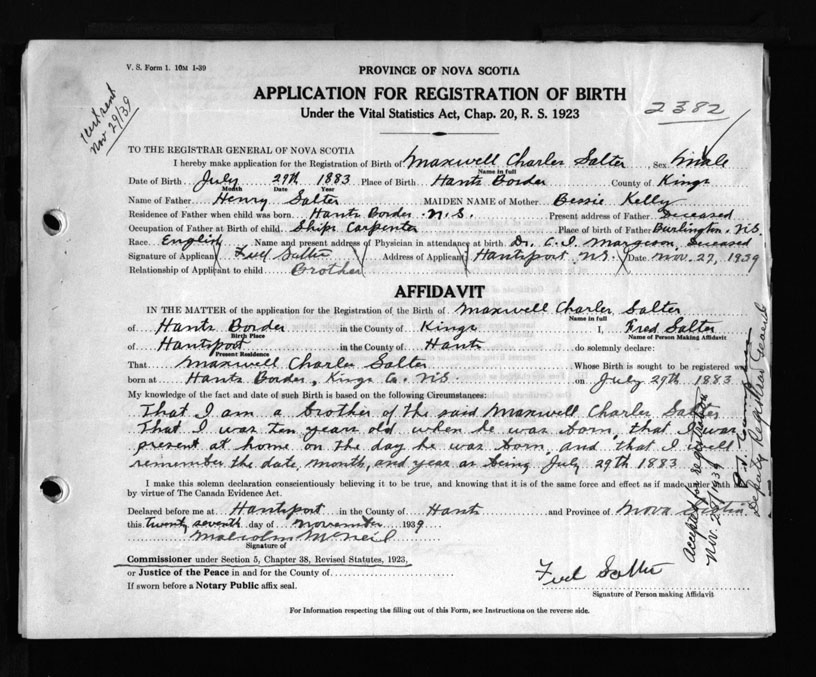 V. S. Form 1. 10M 1-39
Cert sent
Nov 29/39
PROVINCE OF NOVA SCOTIA
APPLICATION FOR REGISTRATION OF BIRTH
Under the Vital Statistics Act, Chap. 20, R. S. 1923
2382
TO THE REGISTRAR GENERAL OF NOVA SCOTIA
I hereby make application for the Registration of Birth of Maxwell Charles Salter Sex male
Name in full
Date of Birth July 29th 1883 Place of Birth Hants Border County of Kings
Month Date Year
Name of Father Henry Salter MAIDEN NAME of Mother Bessie Kelly
Residence of Father when child was born Hants Border N.S. Present address of Father Deceased
Occupation of Father at Birth of child Ships Carpenter Place of birth of Father Burlington N.S.
Race English Name and present address of Physician in attendance at birth Dr. Margeson, Deceased
Signature of Applicant Fred Salter Address of Applicant Hantsport N.S. Date Nov. 27, 1939
Relationship of Applicant to child Brother
AFFIDAVIT
IN THE MATTER of the application for the Registration of the Birth of Maxwell Charles Salter
Name in full
of Hants Border in the County of Kings I, Fred Salter
Birth Place Name of Person Making Affidavit
of Hantsport in the County of Hants do solemnly declare:
Present Residence
That Maxwell Charles Salter Whose Birth is sought to be registered was
born at Hants Border, Kings Co. N.S. on July 29th 1883
My knowledge of the fact and date of such Birth is based on the following Circumstances:
That I am a brother of the said Maxwell Charles Salter
That I was ten years old when he was born, that I was
present at home on the day he was born, and that I well
remember the date, month, and year as being July 29th 1883
I make this solemn declaration conscientiously believing it to be true, and knowing that it is of the same force and effect as if made under oath
by virtue of The Canada Evidence Act.
Declared before me at Hantsport in the County of Hants and Province of Nova Scotia
this twenty seventh day of November 1939
Malcolm McNeil
Signature of
Commissioner under Section 5, Chapter 38, Revised Statutes, 1923,
or Justice of the Peace in and for the County of
If sworn before a Notary Public affix seal.
Fred Salter
Signature of Person making Affidavit
For Information respecting the filling out of this Form, see Instructions on the reverse side.
Accepted for registration
Nov. 29/1939
Deputy Registrar General